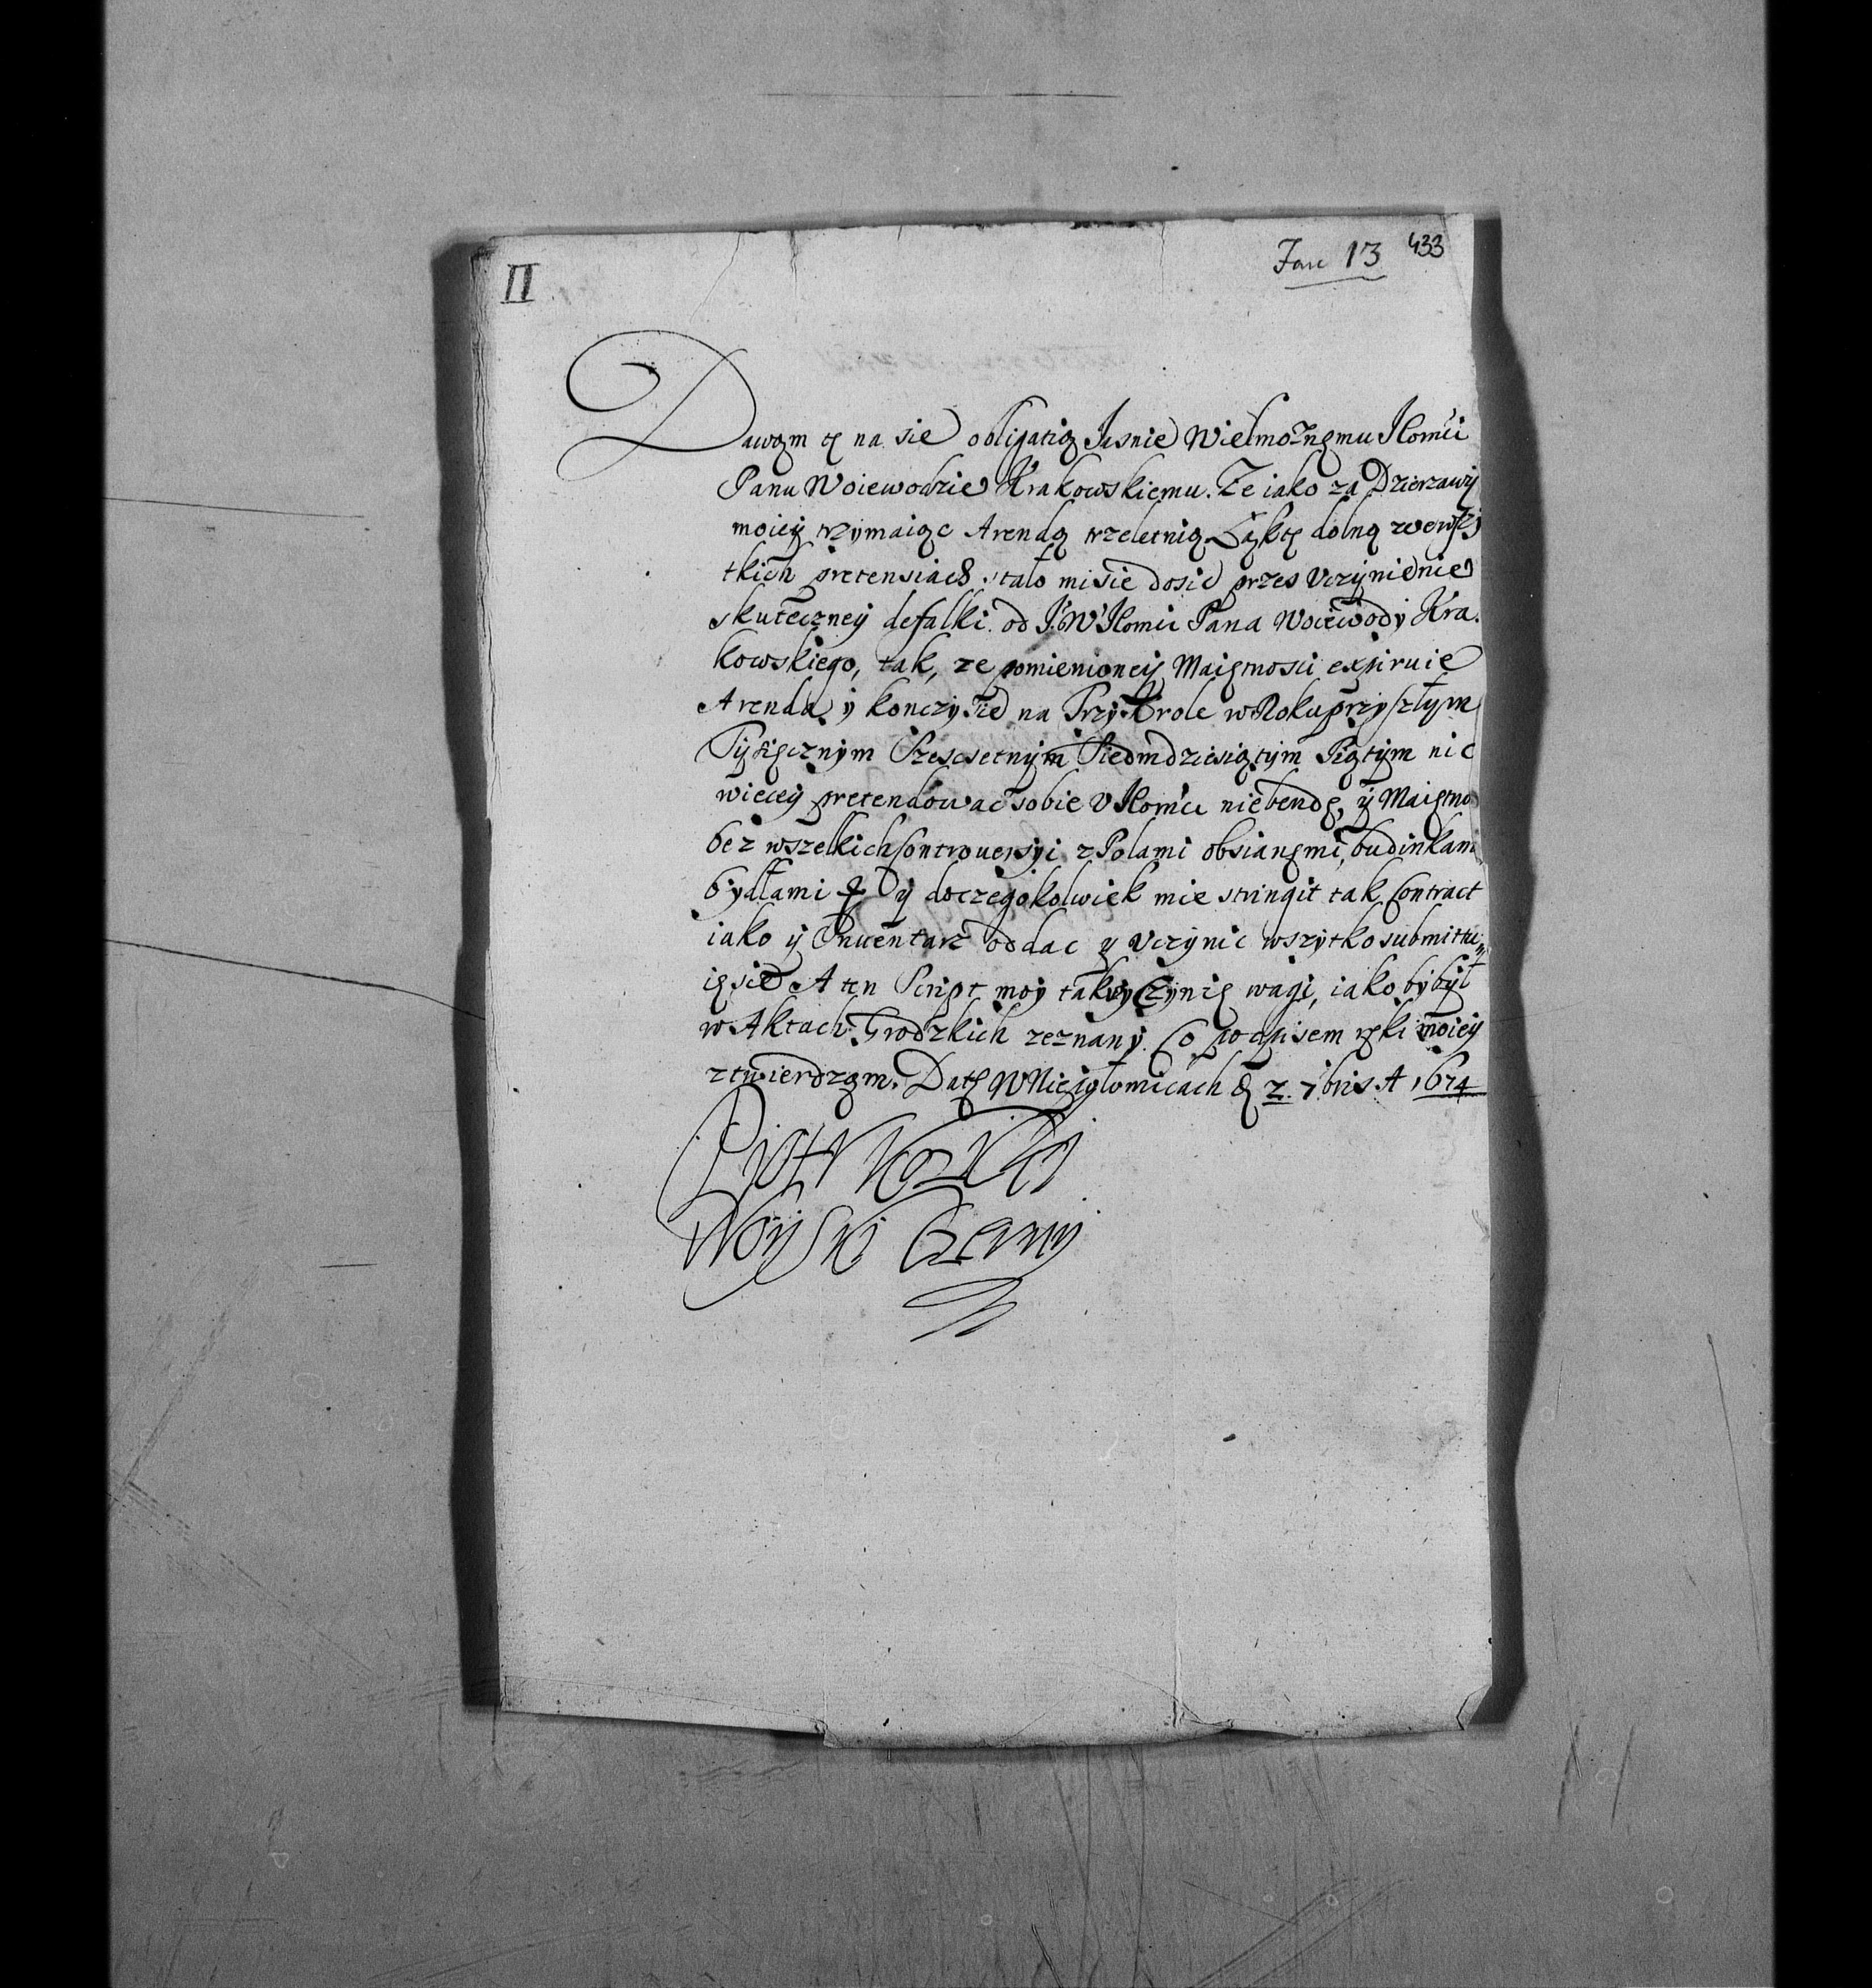 II
Fasc 13 433
Dawam tę na sie obligatią Jasnie Wielmoznemu Jłomći
Panu Woiewodzie Krakowskiemu. Ze iako za Dzierzawÿ
moieÿ trzymaiąc Arendą trzeletnią Łąktę dolną wewszÿ
tkich pretensiach stało misie dosic przes Vczynienie
skuteczneÿ defalki od J.W Jłomći Pana Woiewody Kra.
kowskiego, tak, ze pomienioneÿ Maiętnosci expiruie
Arenda ÿ konczy sie na Trzy Krole w Roku przyszłym
Tysięcznym Szescsetnym Siedmdziesiątym Piątym nic
wieceÿ pretendowac sobie V Jłomći niebendę, ÿ Maiętno
bez wszelkich Controuersyi z Polami obsianemi, budinkami
bydłami ÿ doczegokolwiek mie stringit tak Contract
iako ÿ Inuentarz oddac y Vczynic wszytko submittu
ię sie A ten Script moy takÿ Czynię wagi, iako by był
w Aktach Grodzkich zeznany. Co podpisem ręki moieÿ
ztwierdzam. Datę W Niegłowicach 2. 7bris A 1674
Piotr
Woÿski Czerny